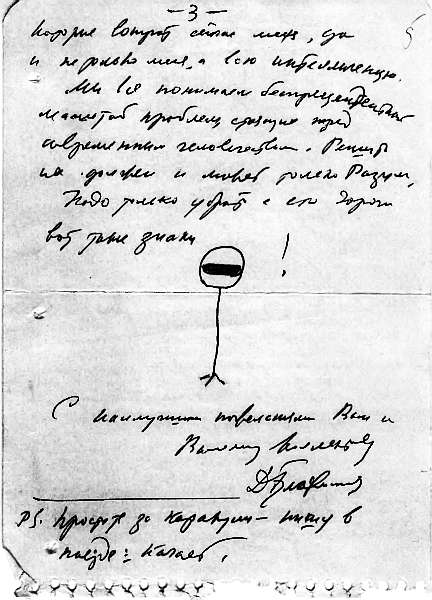 - 3 -
которые волнуют сейчас меня, да
и не только меня, а всю интеллигенцию.
Мы все понимаем беспрецедентный
масштаб проблем, стоящие перед
современным человечеством. Решить
их должен и может только Разум,
Надо только убрать с его дороги
вот такие знаки !
С наилучшими пожеланиями Вам и
Вашему коллективу
P.S. Простите за каракули — пишу в
поезде: качает.